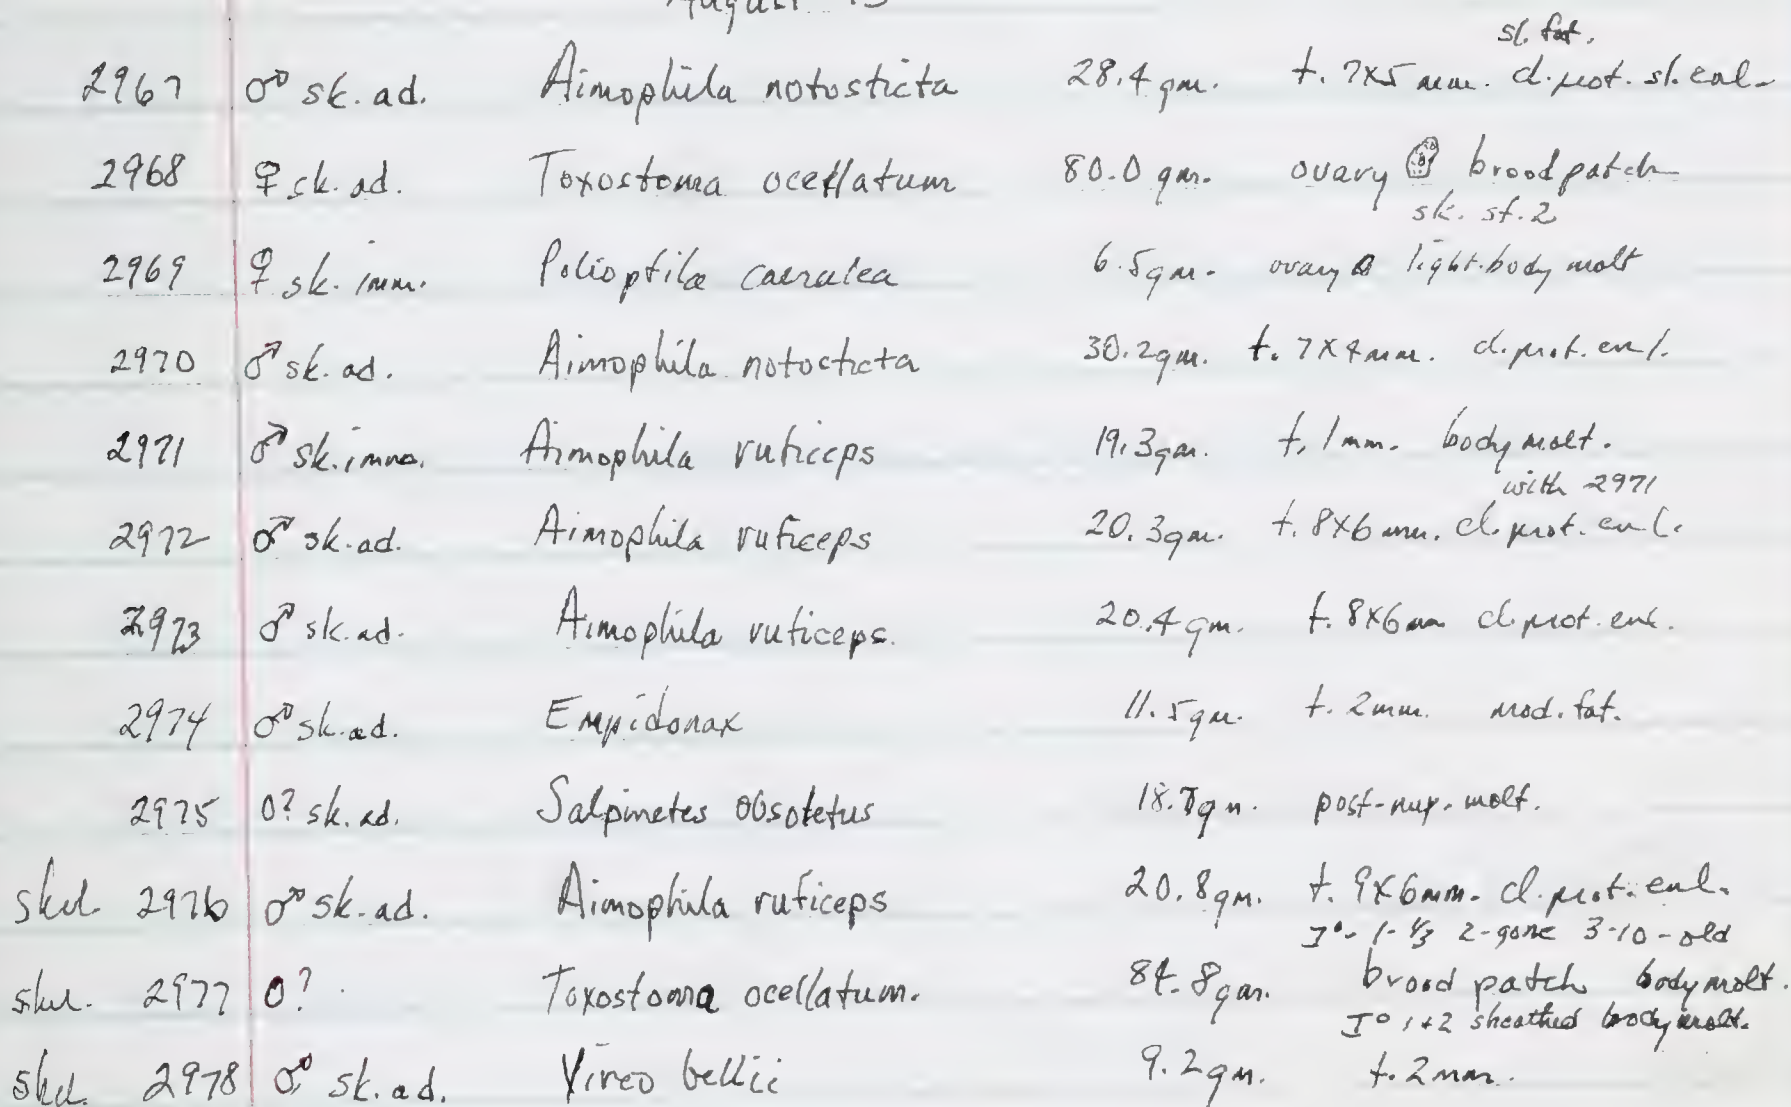 August 15
sl. fat.
2967 ♂ sk. ad. Aimophila notosticta 28.4 gm. t. 7x5 mm. cl. prot. sl. enl.
2968 ♀ sk. ad. Toxostoma ocellatum 80.0 gm. ovary brood patch
sk. st. 2
2969 ♀ sk. imm. Polioptila caerulea 6.5 gm. ovary light body molt
2970 ♂ sk. ad. Aimophila notosticta 30.2 gm. t. 7x4 mm. cl. prot. enl.
2971 ♂ sk. imm. Aimophila ruficeps 19.3 gm. t. 1 mm. body molt.
with 2971
2972 ♂ sk. ad. Aimophila ruficeps 20.3 gm. t. 8x6 mm. cl. prot. enl.
2973 ♂ sk. ad. Aimophila ruficeps. 20.4 gm. t. 8x6 mm cl. prot. enl.
2974 ♂ sk. ad. Empidonax 11.5 gm. t. 2 mm. mod. fat.
2975 O? sk. ad. Salpinctes obsoletus 18.7 gm. post-nup. molt.
skel. 2976 ♂ sk. ad. Aimophila ruficeps 20.8 gm. t. 9x6 mm. cl. prot. enl.
I°- 1-1/3 2-gone 3-10-old
skel. 2977 O? Toxostoma ocellatum. 84.8 gm. brood patch body molt.
I° 1+2 sheathed body molt.
skel. 2978 ♂ sk. ad. Vireo bellii 9.2 gm. t. 2 mm.